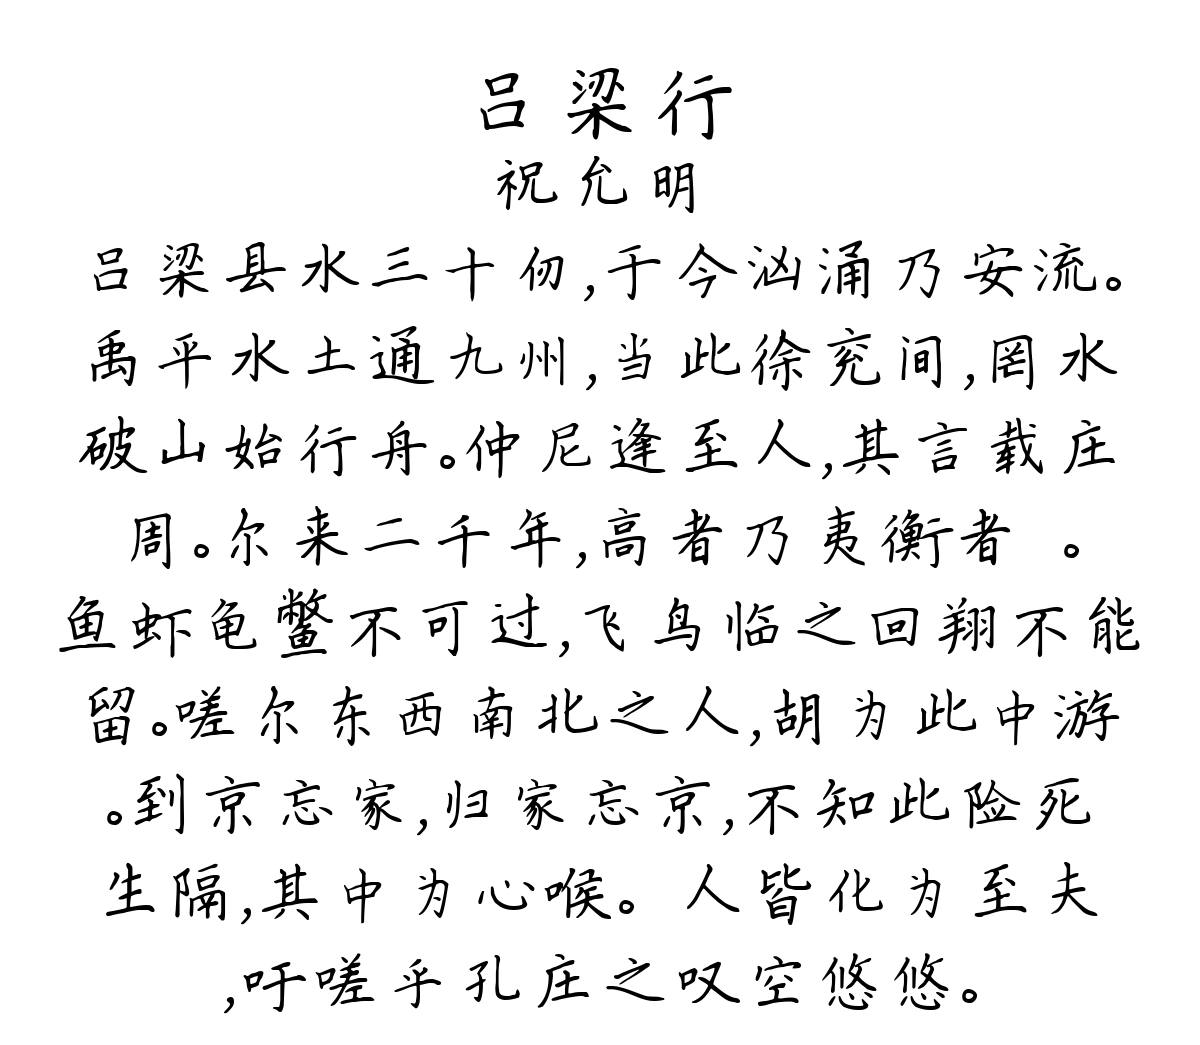 吕梁行
祝允明
吕梁县水三十仞,于今汹涌乃安流。
禹平水土通九州,当此徐兖间,罔水
破山始行舟。仲尼逢至人,其言载庄
周。尔来二千年,高者乃夷衡者 。
鱼虾龟鳖不可过,飞鸟临之回翔不能
留。嗟尔东西南北之人,胡为此中游
。到京忘家,归家忘京,不知此险死
生隔,其中为心喉。人皆化为至夫
,吁嗟乎孔庄之叹空悠悠。